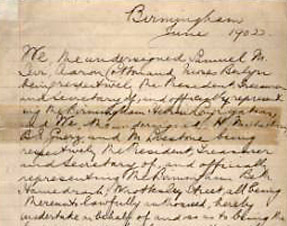 Birmingham
June 1902
We, the undersigned Samuel M.
Levi, Aaron Cotton and Moses Berlyn
being respectively the President, Treasurer
and Secretary of, and officially represent-
ing the Birmingham
and We the undersigned H.
B. S. and M. being
respectively the President, Treasurer
and Secretary of, and officially
representing the Birmingham Beth
Hamedrash, Wrottesley Street, all being
thereunto lawfully authorised, hereby
undertake on behalf of and so as to being the